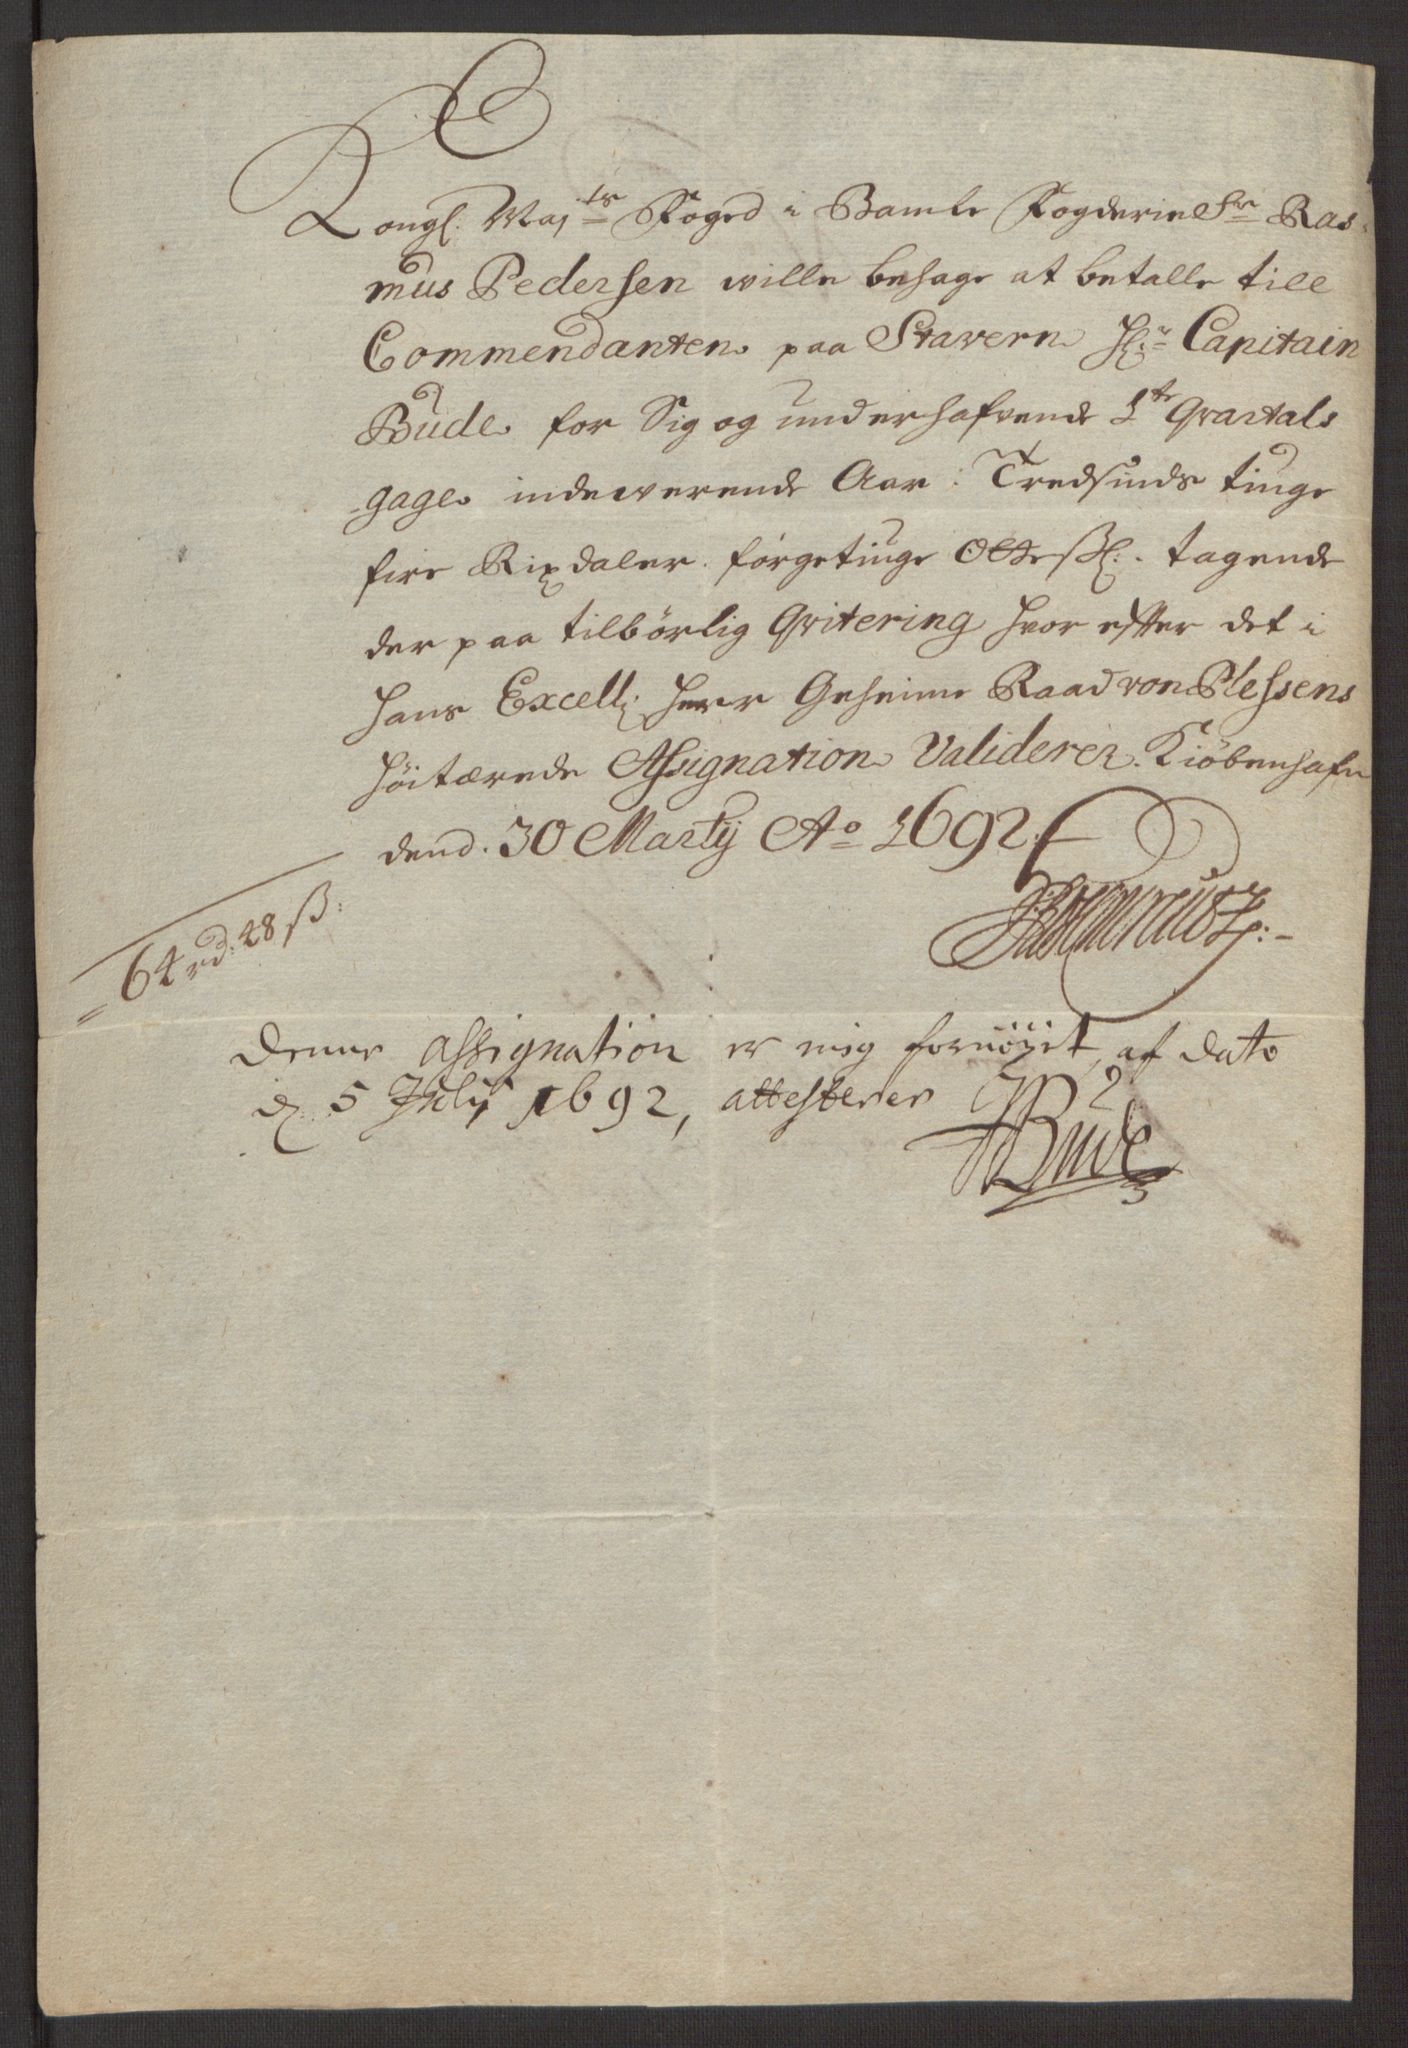 Kongl. Maj.ts Foged i Bamle Fogderie Sr Ras-
mus Pedersen wille behage at betalle till
Commendanten paa Stavern Hr. Capitain
Bude for Sig og underhafvende 1te Qvartals
gage indewerende Aar: Tredsinds tiuge
fire Rixdaler. förgetiuge Otte ßl. tagende
der paa tilbörlig Qvitering hvor effter det i
Hans Excell: Herr Geheime Raad von Plessens
höitærede Assignation Validerer. Kiöbenhafn
dend. 30 Martij Ao 1692.
64 rd: 48 ß:
Denne assignation er mig fornöyet, af dato
d. 5 Julij 1692, attesterer
Bude